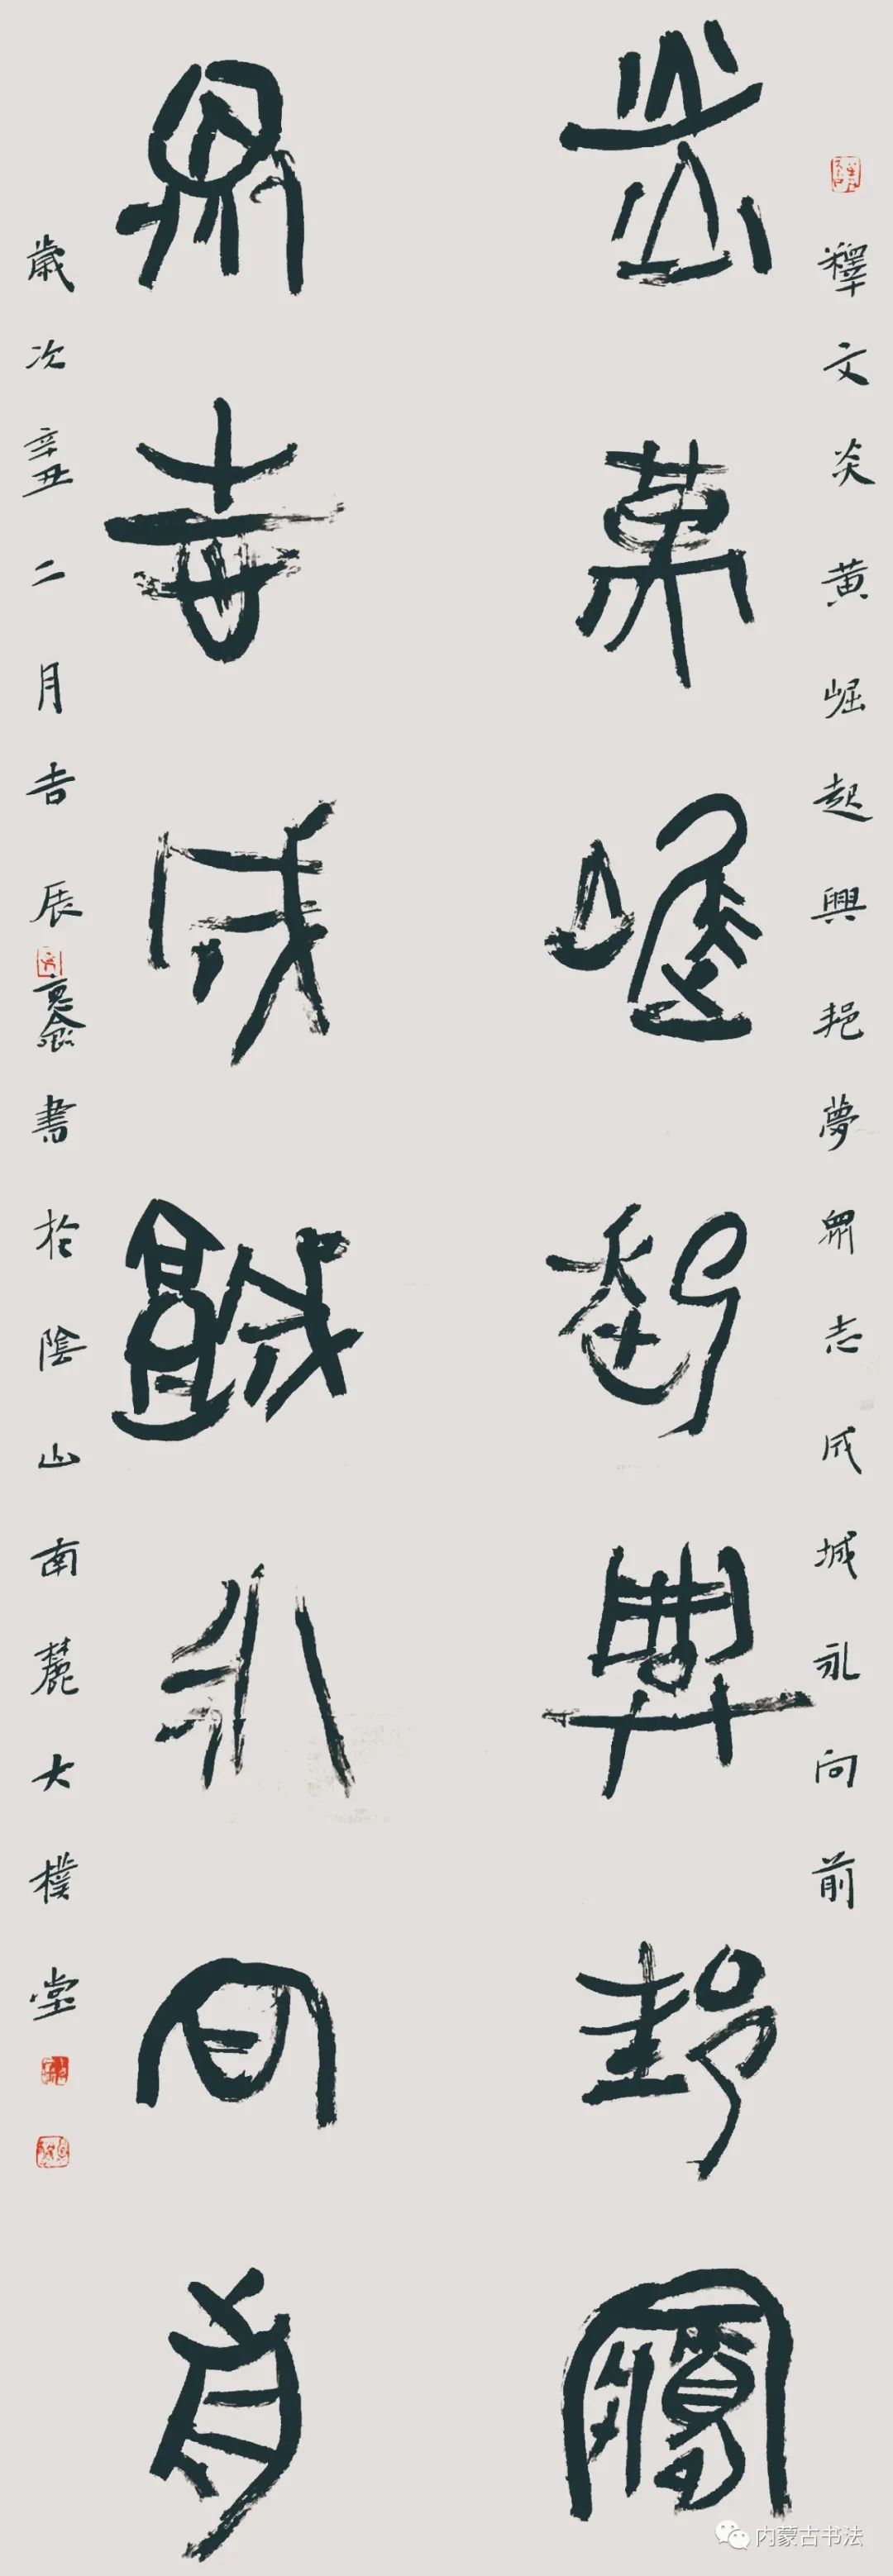 釋文炎黄崛起興邦夢眾志成城永向前
炎黄崛起興邦夢
眾志成城永向前
歲次辛丑二月吉辰書於陰山南麓大樸堂
内蒙古书法